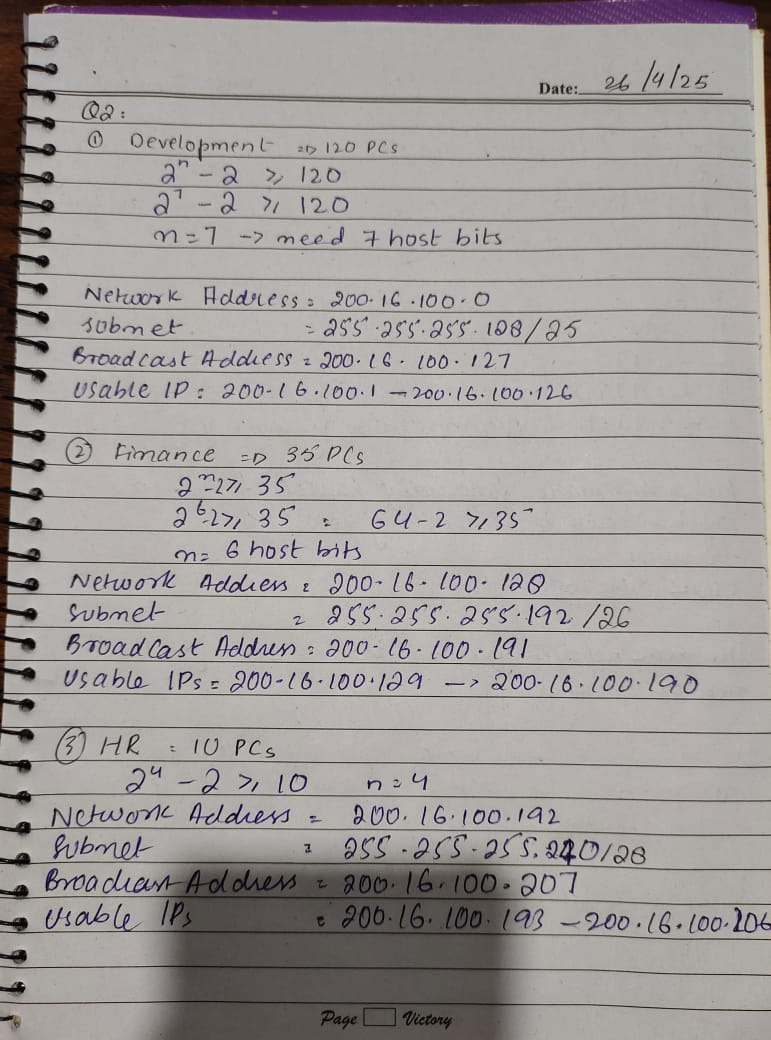 Date: 26/4/25
Q2:
① Development => 120 PCs
2ⁿ - 2 ≥ 120
2⁷ - 2 ≥ 120
n=7 -> need 7 host bits
Network Address = 200.16.100.0
Subnet = 255.255.255.128/25
Broadcast Address = 200.16.100.127
Usable IP = 200.16.100.1 - 200.16.100.126
② Finance => 35 PCs
2ⁿ-2 ≥ 35
2⁶-2 ≥ 35 = 64-2 ≥ 35
n= 6 host bits
Network Address = 200.16.100.128
Subnet = 255.255.255.192 /26
Broadcast Address = 200.16.100.191
Usable IPs = 200.16.100.129 -> 200.16.100.190
③ HR = 10 PCs
2⁴ - 2 ≥ 10 n=4
Network Address = 200.16.100.192
Subnet = 255.255.255.240/28
Broadcast Address = 200.16.100.207
Usable IPs = 200.16.100.193 - 200.16.100.206
Page Victory